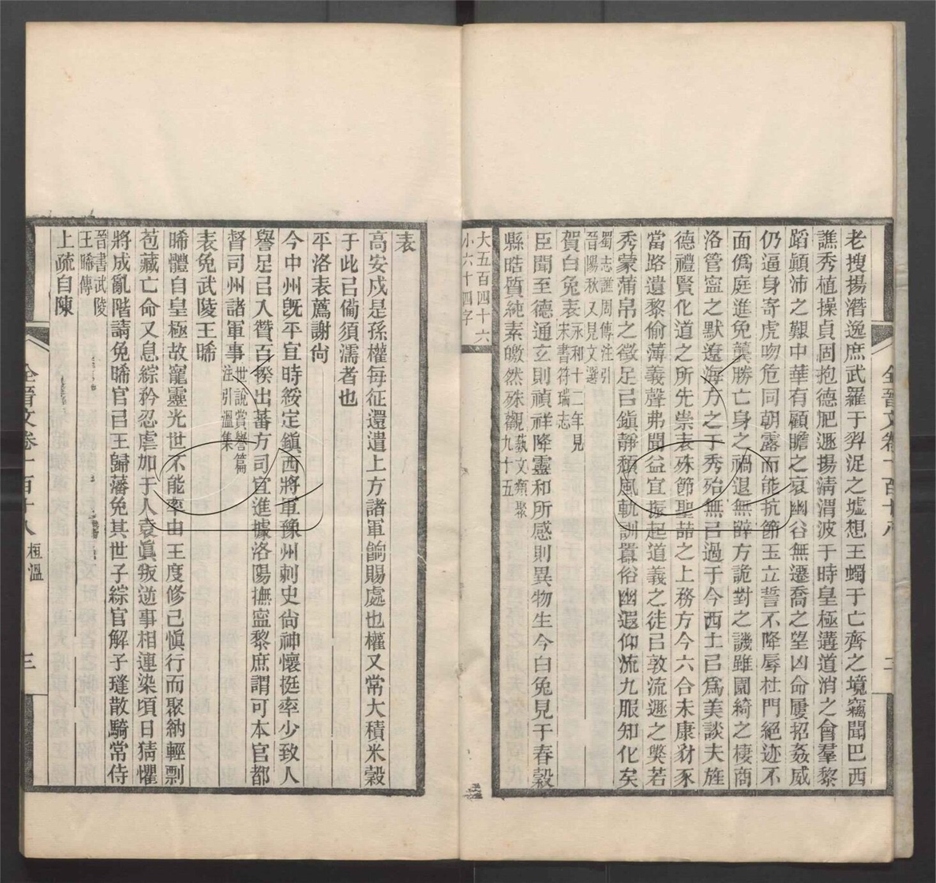 老搜揚潛逸庶武羅于羿浞之墟想王蠋于亡齊之境竊聞巴西
譙秀植操貞固抱德肥遯揚淸渭波于時皇極遘道消之會羣黎
蹈顚沛之艱中華有顧瞻之哀幽谷無遷喬之望凶命屢招姦威
仍逼身寄虎吻危同朝露而能抗節玉立誓不降辱杜門絕迹不
面僞庭進免龔勝亡身之禍退無薛方詭對之譏雖園綺之棲商
洛管寍之默遼海方之于秀殆無㠯過于今西土㠯爲美談夫旌
德禮賢化道之所先崇表殊節聖喆之上務方今六合未康豺豕
當路遺黎偷薄義聲弗聞益宜振起道義之徒㠯敦流遯之獘若
秀蒙蒲帛之徵足㠯鎭靜頹風軌訓囂俗幽遐仰流九服知化矣
蜀志譙周傳注引
晉陽秋又見文選
賀白兔表
永和十二年見
宋書符瑞志
臣聞至德通玄則禎祥降靈和所感則異物生今白兔見于春穀
縣皓質純素皦然殊觀
藝文類聚
九十五
大五百四十六
小六十四字
全晉文卷一百十八
二
表
高安戍是孫權每征還遣上方諸軍餉賜處也權又常大積米穀
于此㠯僃須濡者也
平洛表薦謝尙
今中州旣平宜時綏定鎭西將軍豫州刺史尙神懷挺率少致人
譽足㠯入贊百揆出蕃方司宜進據洛陽撫寍黎庶謂可本官都
督司州諸軍事
世說賞譽篇
注引溫集
表免武陵王晞
晞體自皇極故寵靈光世不能率由王度修己愼行而聚納輕剽
苞藏亡命又息綜矜忍虐加于人袁眞叛逆事相連染頃日猜懼
將成亂階請免晞官㠯王歸藩免其世子綜官解子㻭散騎常侍
晉書武陵
王晞傳
上疏自陳
全晉文卷一百十八
桓溫
三